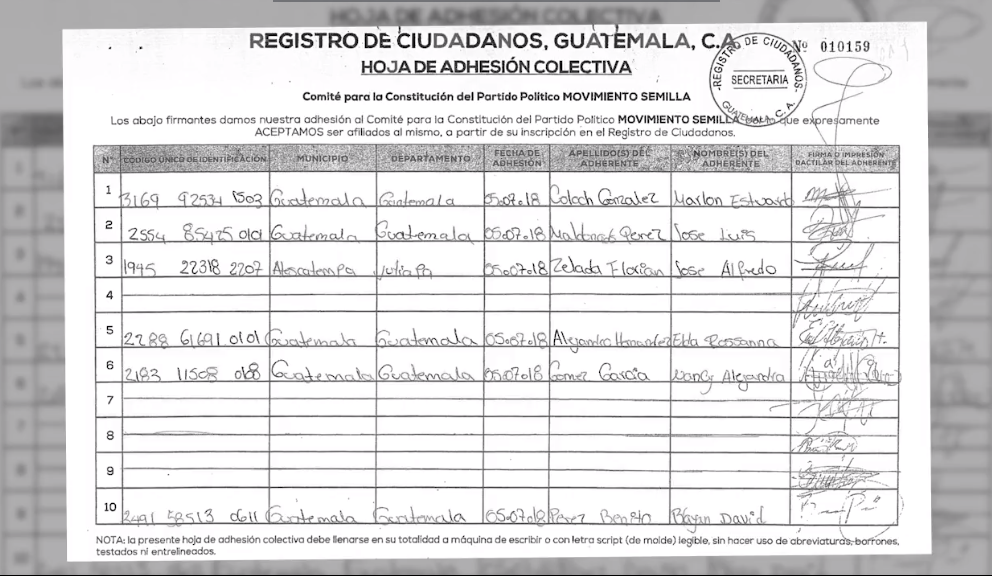 HOJA DE ADHESIÓN COLECTIVA
REGISTRO DE CIUDADANOS, GUATEMALA, C.A.
HOJA DE ADHESIÓN COLECTIVA
Nº 010159
REGISTRO DE CIUDADANOS
SECRETARIA
GUATEMALA, C. A.
Comité para la Constitución del Partido Político MOVIMIENTO SEMILLA
Los abajo firmantes damos nuestra adhesión al Comité para la Constitución del Partido Político MOVIMIENTO SEMILLA que expresamente
ACEPTAMOS ser afiliados al mismo, a partir de su inscripción en el Registro de Ciudadanos.
Nº CÓDIGO ÚNICO DE IDENTIFICACIÓN MUNICIPIO DEPARTAMENTO FECHA DE ADHESIÓN APELLIDO(S) DEL ADHERENTE NOMBRE(S) DEL ADHERENTE FIRMA O IMPRESIÓN DACTILAR DEL ADHERENTE
1 3169 92534 1503 Guatemala Guatemala 05.07.18 Coloch Gonzalez Marlon Estuardo
2 2554 85425 0101 Guatemala Guatemala 05.07.18 Maldonado Perez Jose Luis
3 1945 22318 2207 Atescatempa Jutiapa 05.07.18 Zelada Florian Jose Alfredo
4
5 2288 61691 0101 Guatemala Guatemala 05.07.18 Alejandra Hernandez Elda Rossanna
6 2183 11508 0108 Guatemala Guatemala 05.07.18 Gomez Garcia Nancy Alejandra
7
8
9
10 2491 58513 0611 Guatemala Guatemala 05.07.18 Perez Benito Bayan David
NOTA: la presente hoja de adhesión colectiva debe llenarse en su totalidad a máquina de escribir o con letra script (de molde) legible, sin hacer uso de abreviaturas, borrones,
testados ni entrelineados.